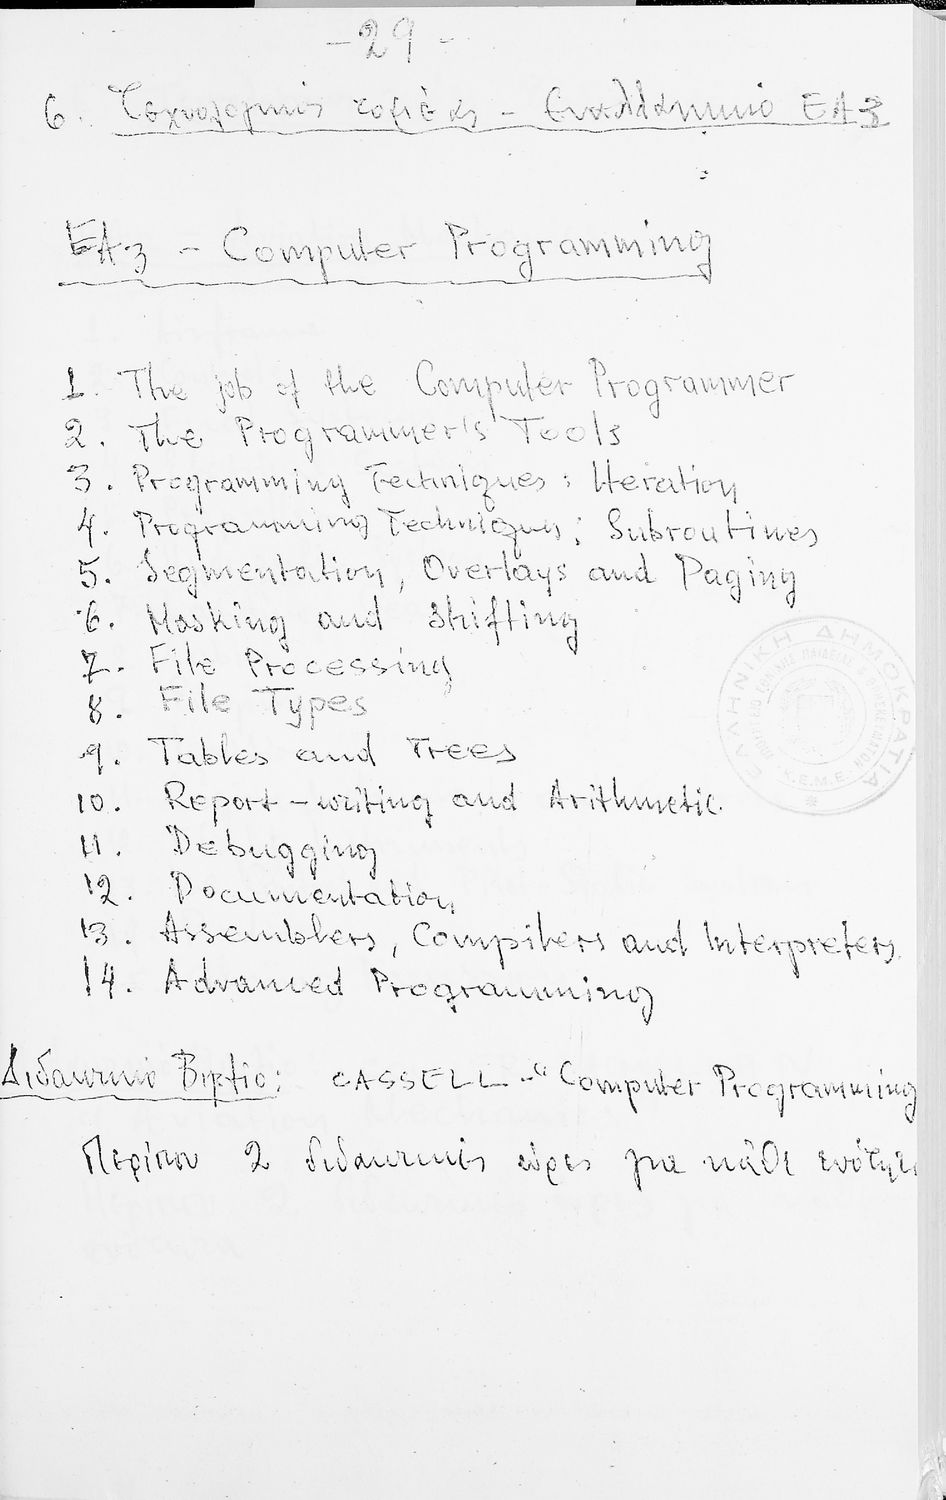 -29-
6. Τεχνολογικός τομέας - Εναλλακτικό ΕΑ3
ΕΑ3 - Computer Programming
1. The job of the Computer Programmer
2. The Programmer's Tools
3. Programming Techniques: Iteration
4. Programming Techniques: Subroutines
5. Segmentation, Overlays and Paging
6. Masking and Shifting
7. File Processing
8. File Types
9. Tables and Trees
10. Report-writing and Arithmetic.
11. Debugging
12. Documentation
13. Assemblers, Compilers and Interpreters.
14. Advanced Programming
Διδακτικό Βιβλίο: CASSELL - "Computer Programming
Περίπου 2 διδακτικές ώρες για κάθε
ΕΛΛΗΝΙΚΗ ΔΗΜΟΚΡΑΤΙΑ
Κ.Ε.Μ.Ε.